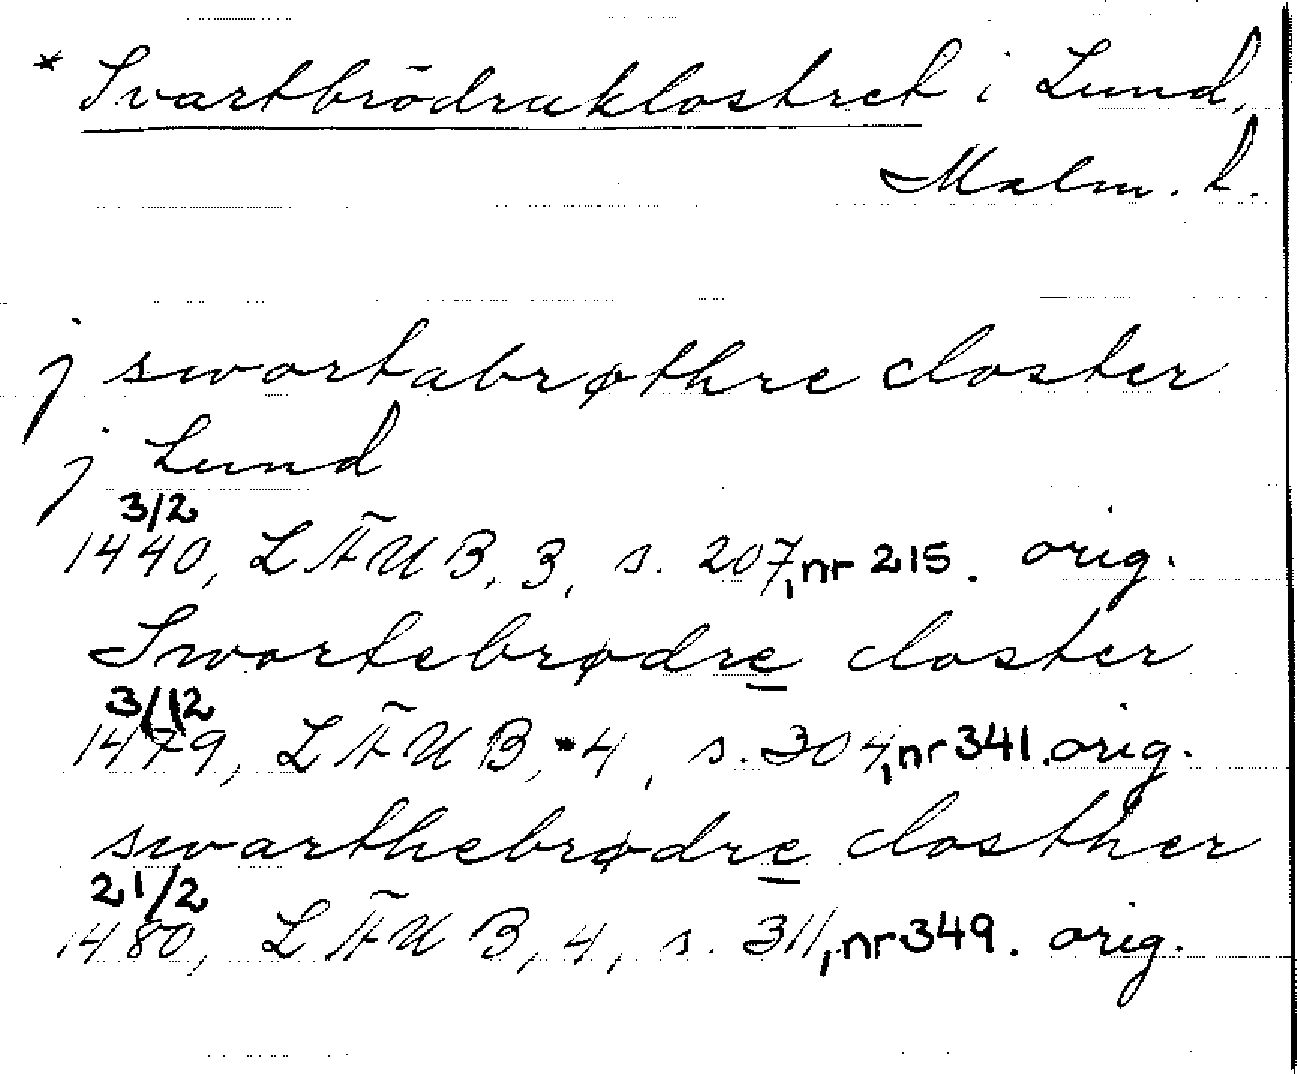 * Svartbrödraklostret i Lund,
Malm. l.
j swortabrøthre closter
j Lund
3/2
1440, LÄUB, 3, s. 207, nr 215. orig.
Swortebrødre closter
3/12
1479, LÄUB, 4, s. 304, nr 341. orig.
swarthebrødre closther
21/2
1480, LÄUB, 4, s. 311, nr 349. orig.